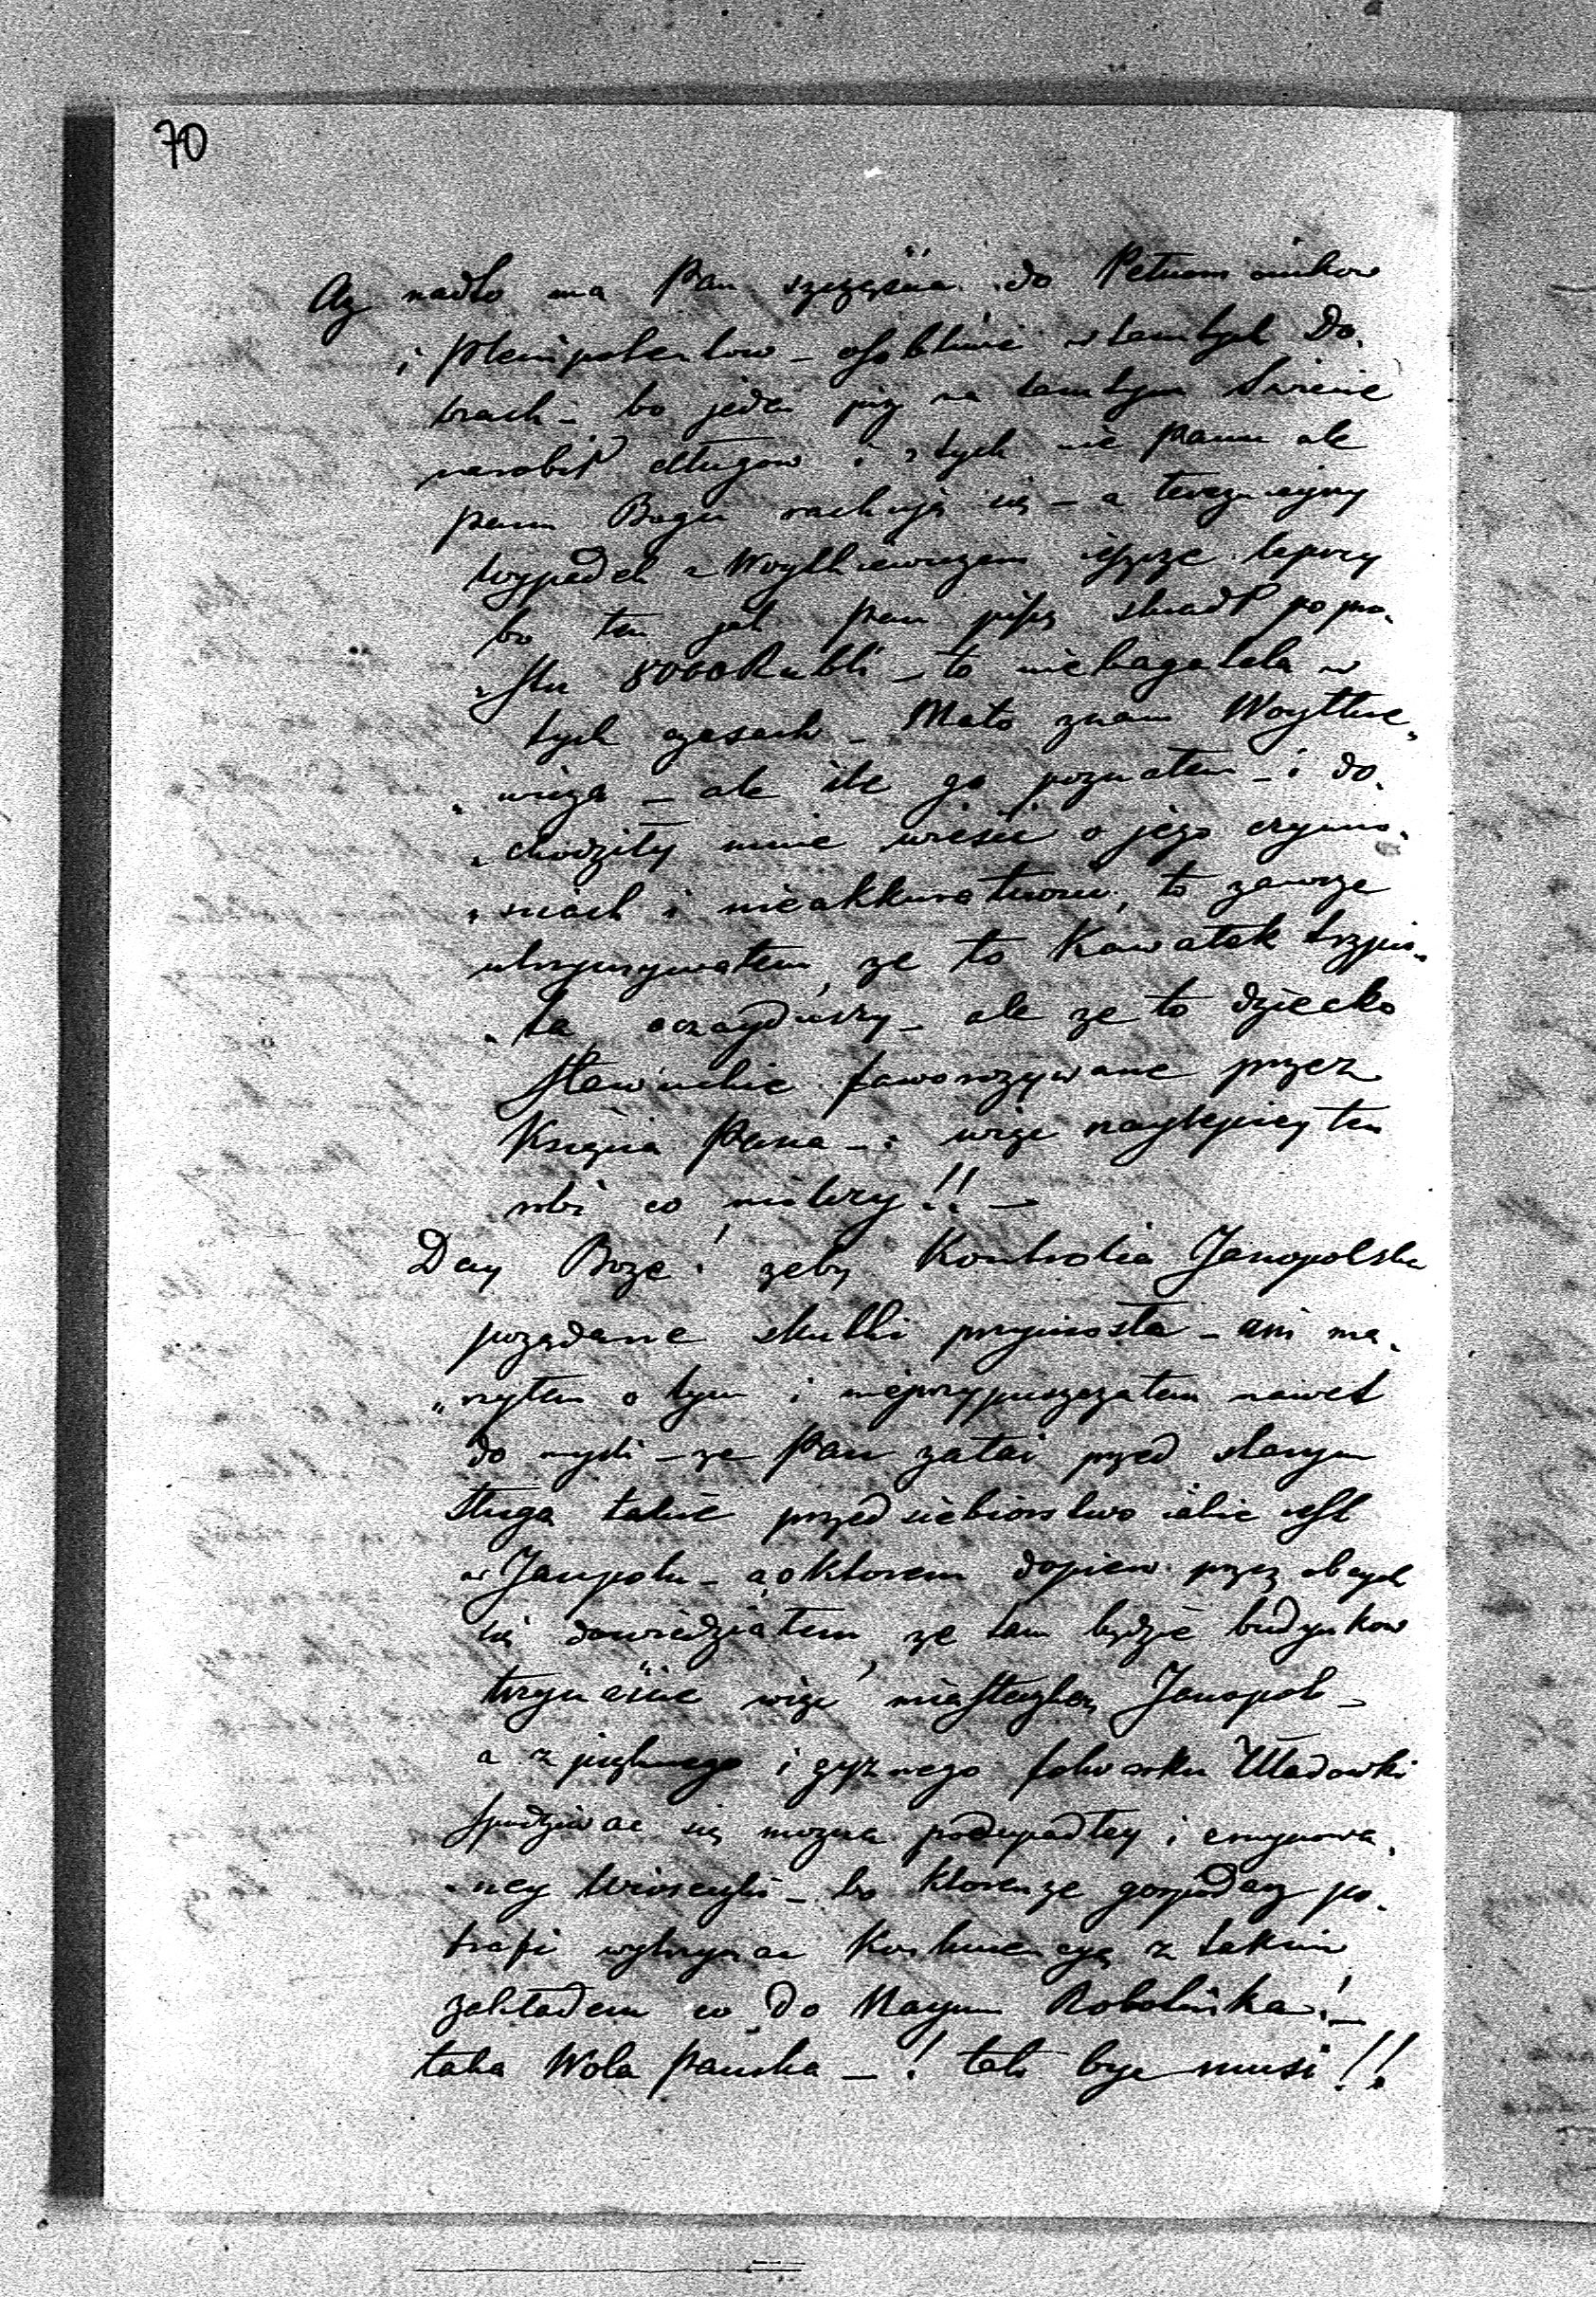 70
Az nadto ma Pan szczęścia do Pełnomocnikow
i Plenipotentow – osobliwie w tamtych Do„
brach – bo jeden już na tamtym Swiecie
narobił długow i z tych nie Panu ale
panu Bogu rachuje się – a teraznieyszy
wypadek z Woytkiewiczem ieszcze lepszy
bo ten jak Pan pisze skradł po pro„
„stu 8000 Rubli – to nie bagatela w
tych czasach – Mało znam Woytkie„
„wicza – ale ile go poznałem – i do„
„chodziły mnie wieści o jego czynno„
„sciach i nieakkuratnosci, to zawsze
utrzymywałem, ze to Kawałek
ale ze to dziecko
Sławuckie faworyzywane przez
Księcia Pana – i więc naylepiey ten
robi co nie wierzy!! –
Day Boze! zeby Kontrolia Janopolska
pozadane skutki przyniosła – ani ma„
„rzyłem o tym i nieprzypuszczałem nawet
do mysli – ze Pan zatai przed starym
sługa takie przedsiebiorstwo iakie iest
w Janopolu – o ktorem dopiero przez obcych
się dowiedziałem, ze tam będzie budynkow
trzynaście więc miasteczkem Janopol –
a z pięknego i zyznego folwarku Uładowki
spodziewac się mozna podupadłey i
„ney Wioseczki – bo ktorenze gospodarz po„
trafi wytrzymac Konkurencyą z takim
zakładem co do Naymu Robotnika! –
taka Wola Panska – ! tak byc musi!!